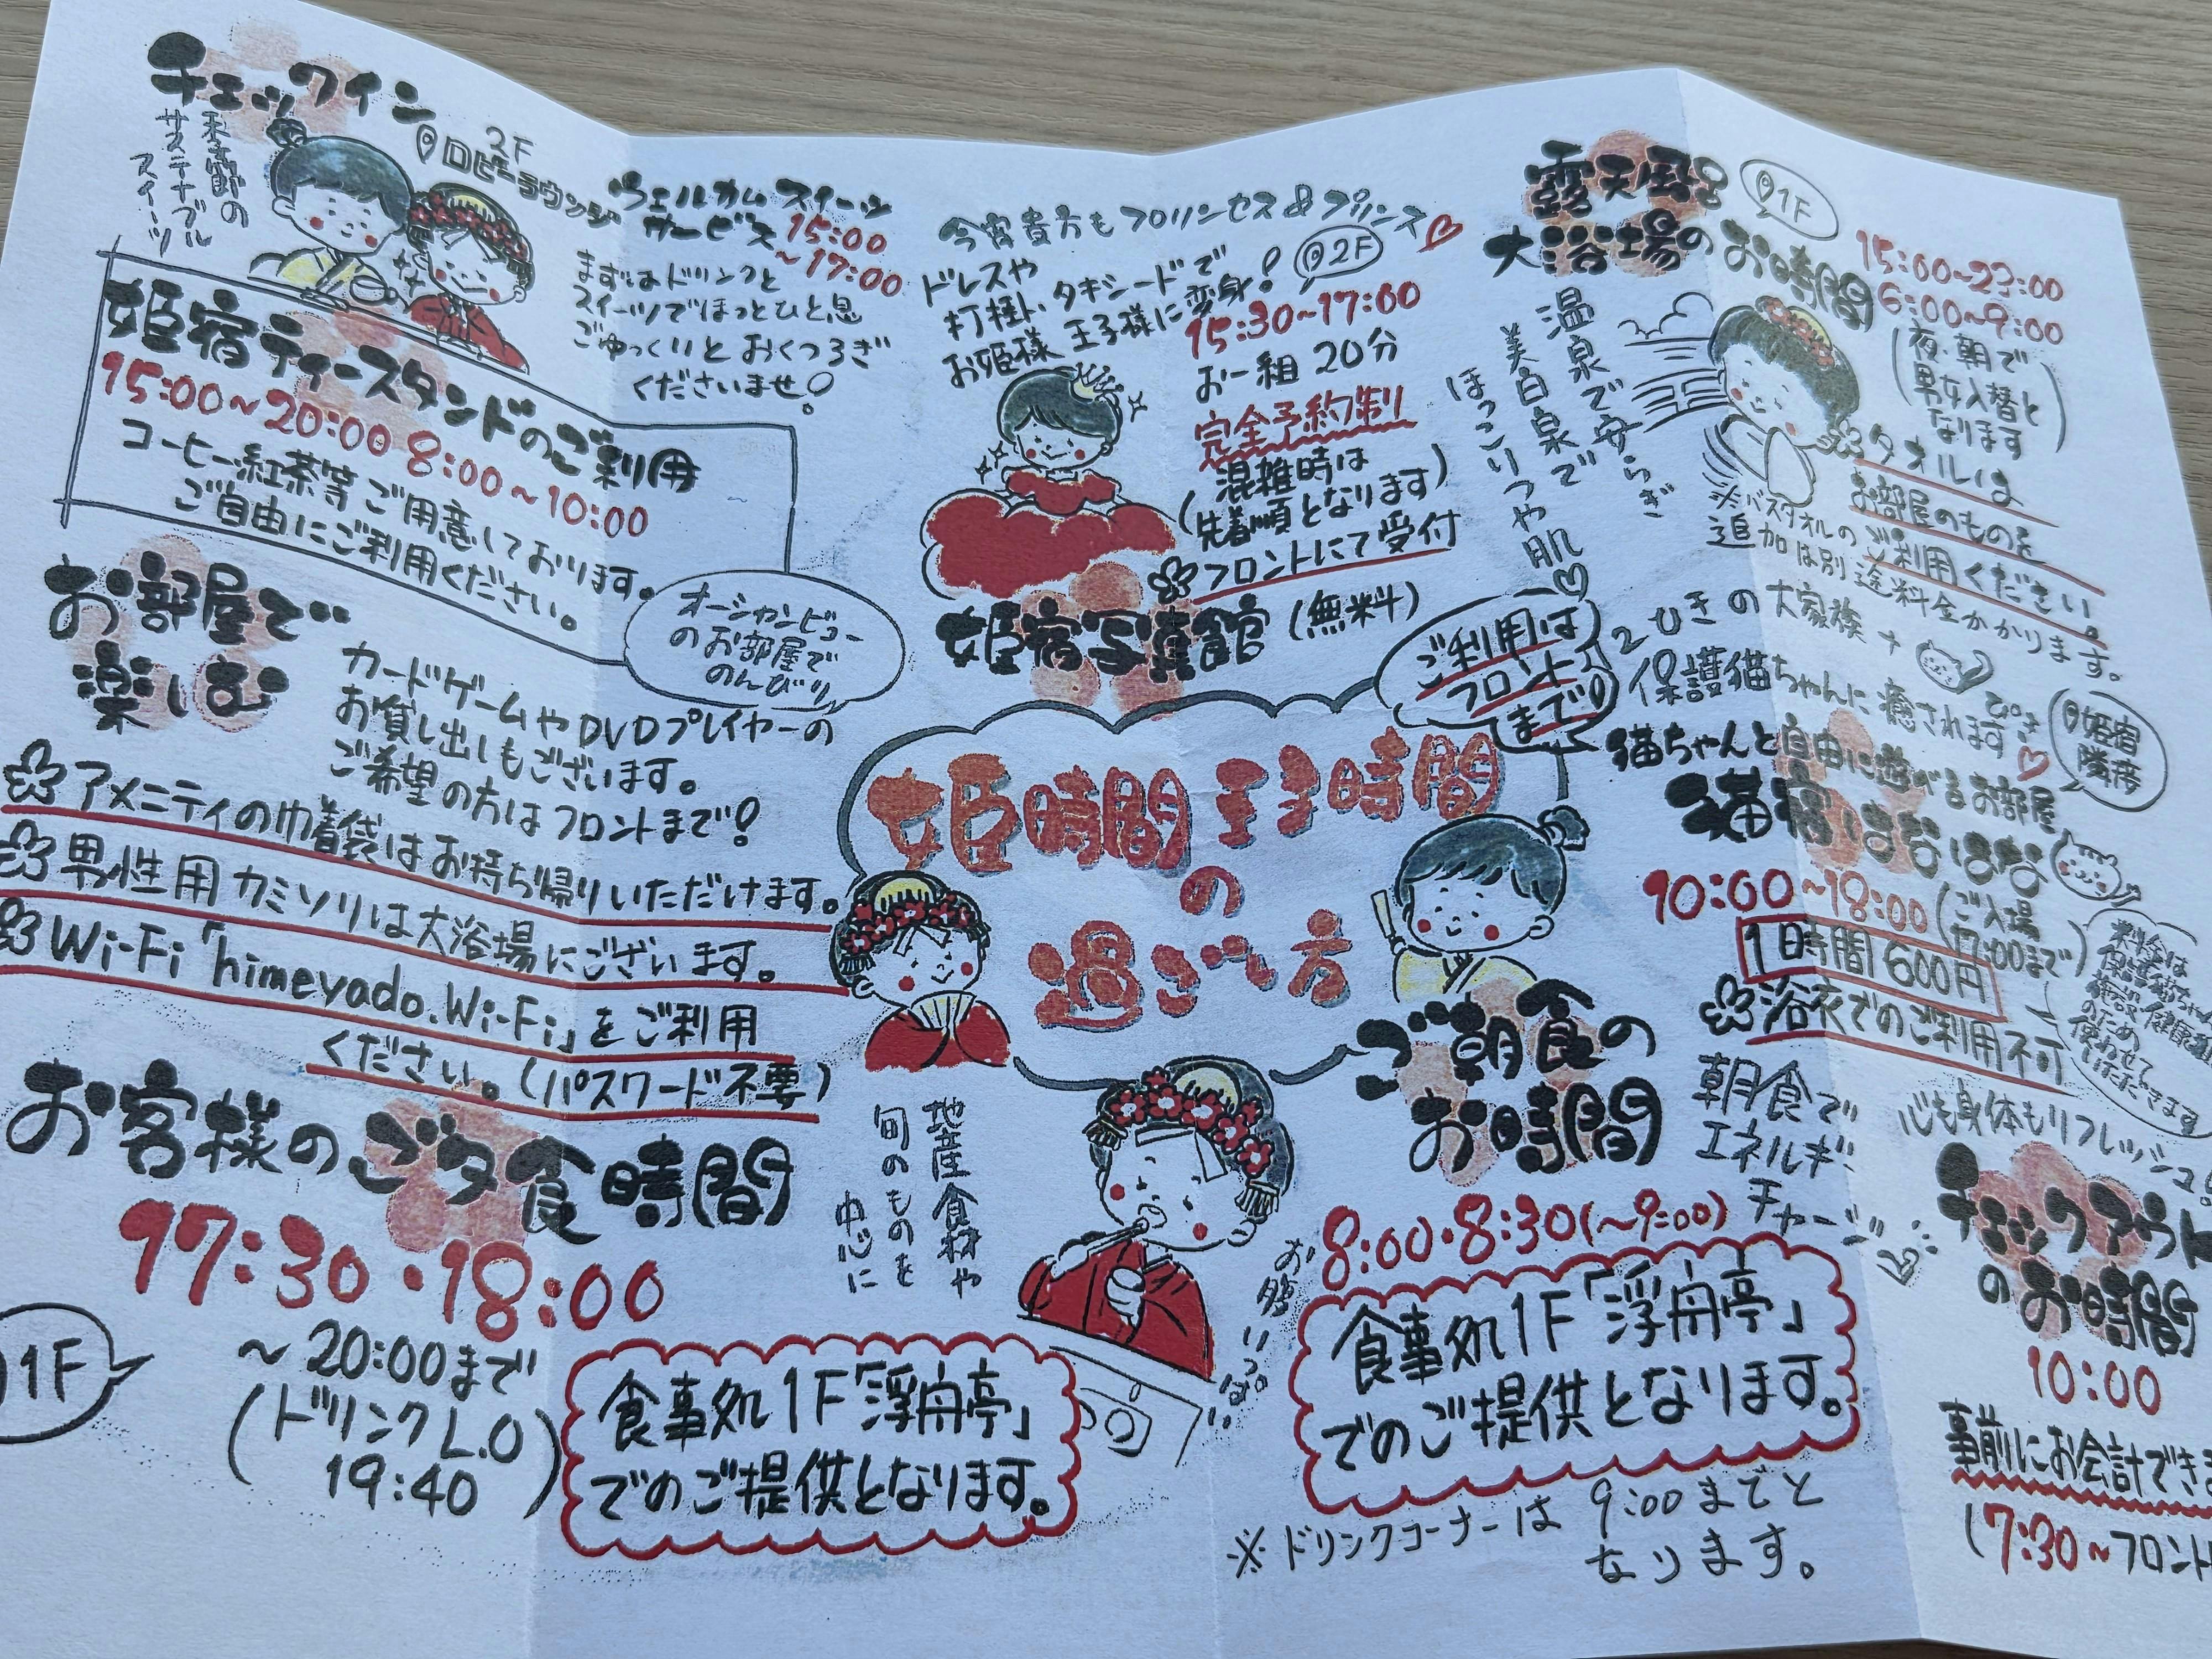 チェックイン
2F
ロビーラウンジ
季節の
サステナブル
スイーツ
ウェルカムスイーツ
サービス 15:00
～17:00
まずはドリンクと
スイーツでほっとひと息
ごゆっくりとおくつろぎ
くださいませ!
姫宿ティースタンドのご利用
15:00～20:00 8:00～10:00
コーヒー紅茶等ご用意しております。
ご自由にご利用ください。
オーシャンビュー
のお部屋で
のんびり
お部屋で
楽しむ
カードゲームやDVDプレイヤーの
お貸し出しもございます。
ご希望の方はフロントまで!
アメニティの巾着袋はお持ち帰りいただけます。
男性用カミソリは大浴場にございます。
Wi-Fi「himeyado.Wi-Fi」をご利用
ください。(パスワード不要)
お客様のご夕食時間
17:30・18:00
1F
～20:00まで
(ドリンクL.O
19:40)
地産食材や
旬のものを
中心に
食事処1F「浮舟亭」
でのご提供となります。
今宵貴方もプリンセス&プリンス♡
ドレスや
打掛、タキシードで
お姫様 王子様に変身!
2F
15:30～17:00
お一組 20分
完全予約制
(混雑時は
先着順となります)
フロントにて受付
姫宿写真館(無料)
姫時間王子時間
の
過ごし方
露天風呂
大浴場のお時間
1F
15:00～23:00
6:00～9:00
(夜・朝で
男女入替と
なります)
温泉で安らぎ
美白泉で
ほっこりつや肌♡
タオルは
お部屋のものを
ご利用ください。
※バスタオルの
追加は別途料金かかります。
ご利用は
フロント
まで!
2ひきの大家族+
ぴき
保護猫ちゃんに癒されます♡
猫ちゃんと自由に遊べるお部屋
姫宿
隣接
猫宿はなはな
10:00～18:00(ご入場
17:00まで)
1時間600円
浴衣でのご利用不可
料金は
保護猫ちゃん
のため
使わせて
いただきます
ご朝食の
お時間
朝食で
エネルギー
チャージ
8:00・8:30(～9:00)
お腹いっぱい
食事処1F「浮舟亭」
でのご提供となります。
※ドリンクコーナーは 9:00までと
なります。
心も身体もリフレッシュ
チェックアウト
のお時間
10:00
事前にお会計できま
(7:30～フロント